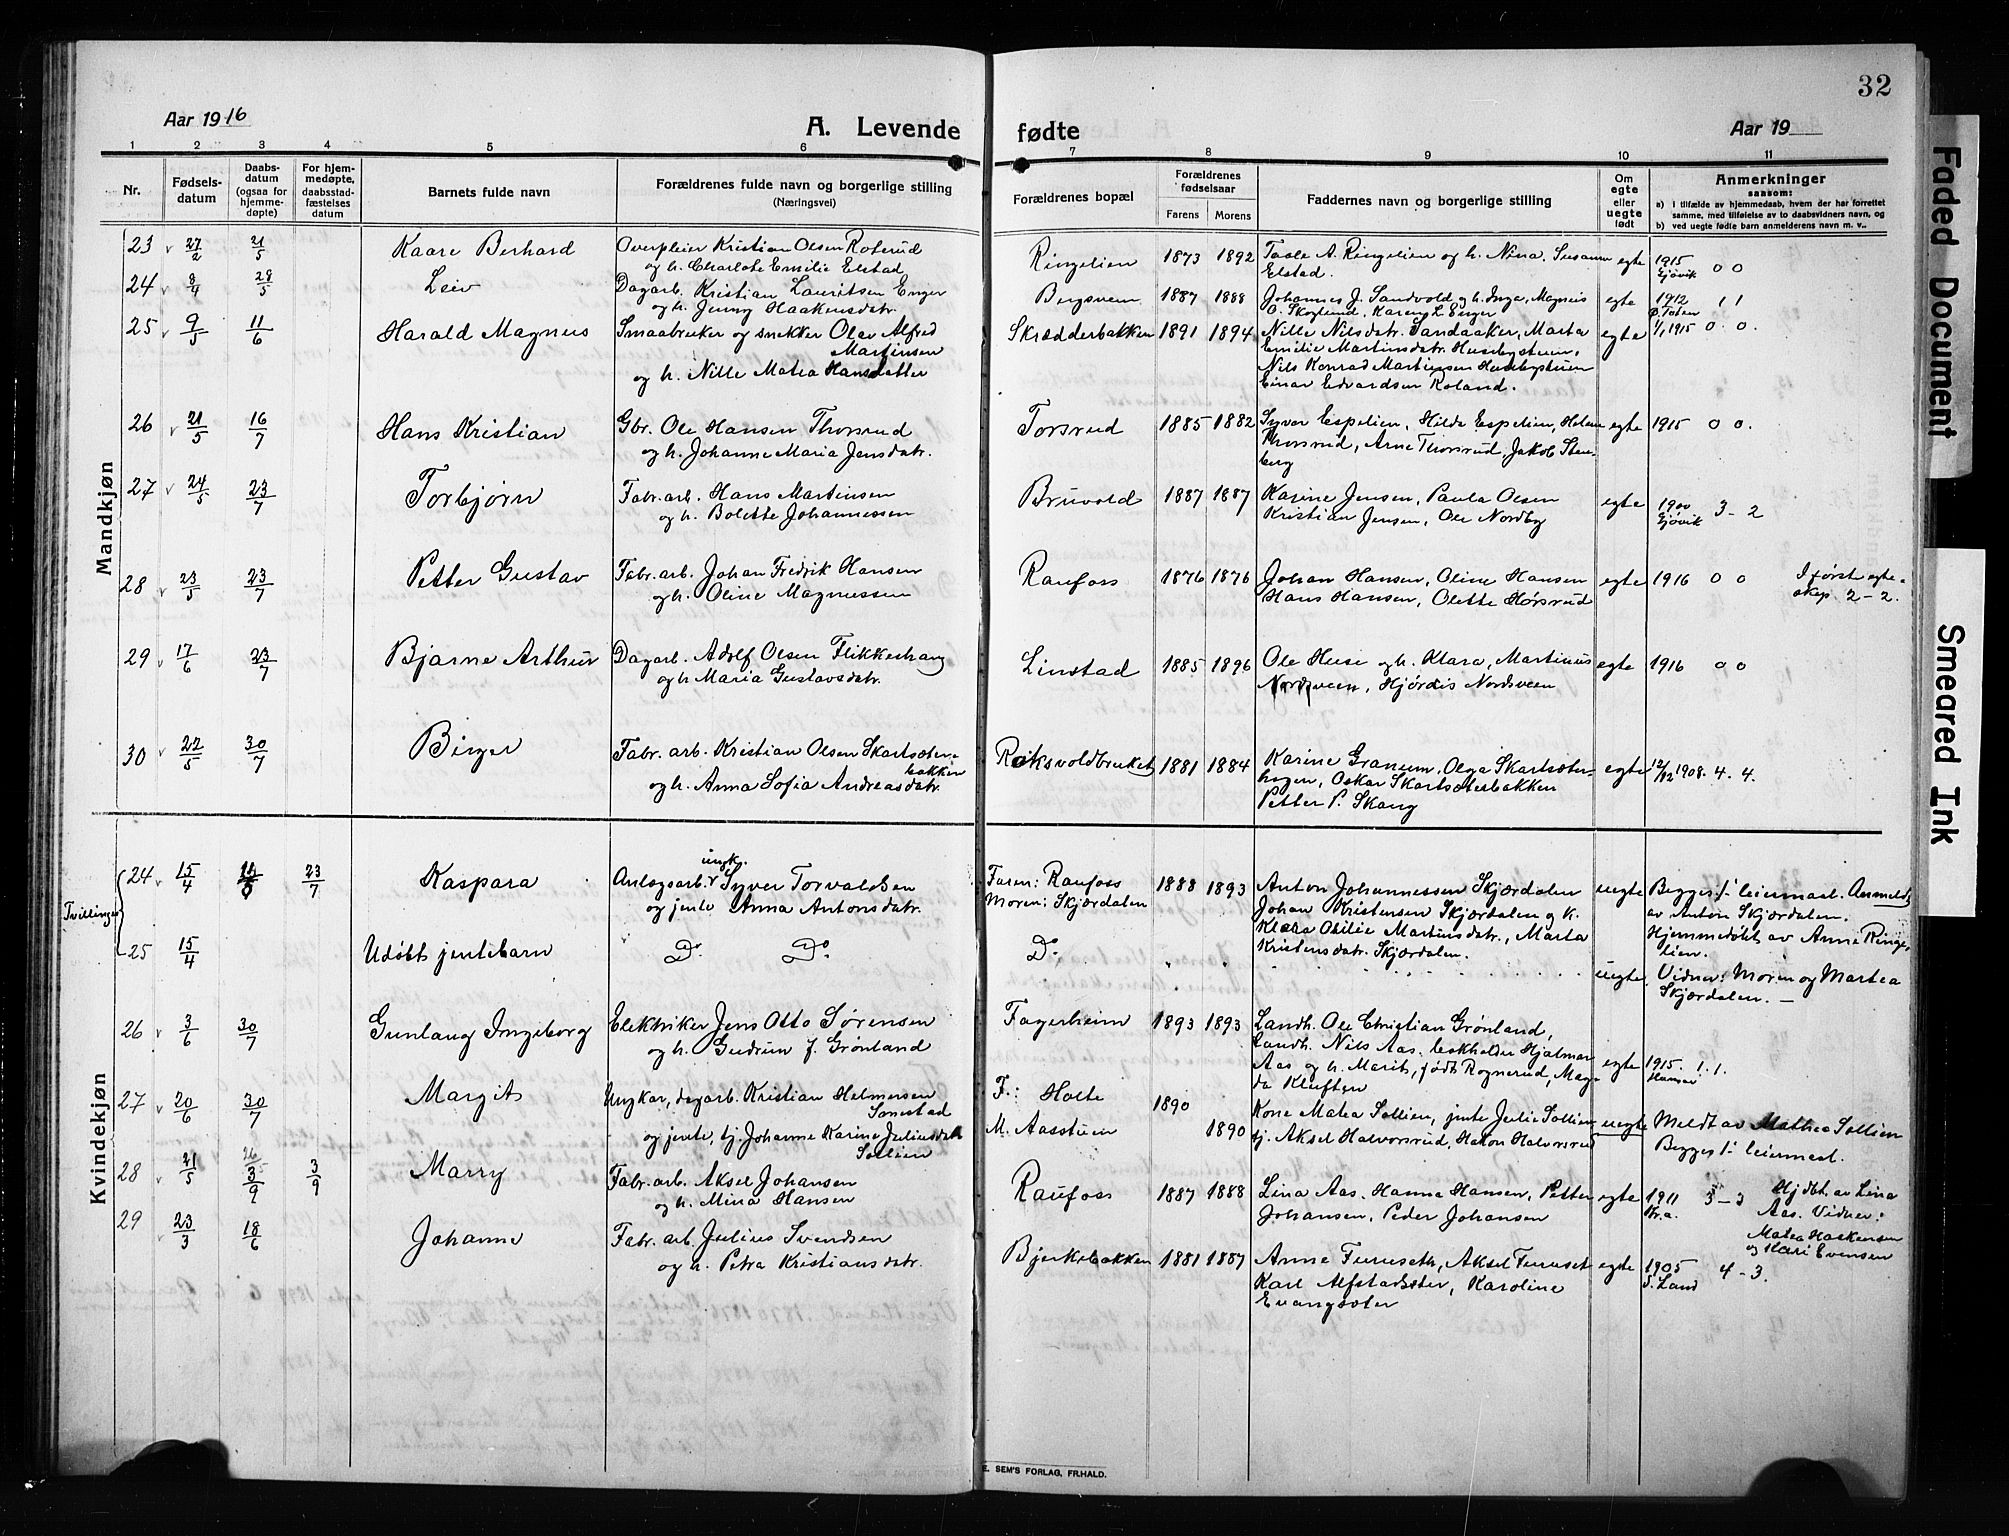 32
Aar 1916
A. Levende fødte
Aar 19
1 2 3 4 5 6 7 8 9 10 11
Nr.
Fødsels-
datum
Daabs-
datum
(ogsaa for
hjemme-
døpte)
For hjem-
medøpte,
daabsstad-
fæstelses
datum
Barnets fulde navn
Forældrenes fulde navn og borgerlige stilling
(Næringsvei)
Forældrenes bopæl
Forældrenes
fødselsaar
Farens Morens
Faddernes navn og borgerlige stilling
Om
egte
eller
uegte
født
Anmerkninger
saasom:
a) i tilfælde av hjemmedaab, hvem der har forrettet
samme, med tilføielse av to daabsvidners navn, og
b) ved uegte fødte barn anmelderens navn m. v..
Mandkjøn
23 27/2 21/5 Kaare Berhard Overpleier Kristian Olsen Roterud Ringelien 1873 1892 Taale A. Ringelien og h. Nina. Susann egte 1915 0 0
og h. Charlote Emilie Elstad Elstad. Gjøvik
24 8/4 28/5 Leiv Dagarb. Kristian Lauritsen Enger Bergsveen 1887 1888 Johannes J. Sandvold og h. Inga, Magnus egte 1912 1 1
og h. Jenny Haakensdatr. O. Skoglund, Karen L. Enger Ø. Toten
25 9/5 11/6 Harald Magnus Smaabruker og snekker Olav Alfred Skrædderbakken 1891 1894 Nille Nilsdatr. Sandaaker, Marta egte 1/1 1915 0. 0.
Martinsen Emilie Martinsdatr. Husebystuen,
og h. Nille Matea Hansdatter Nils Konrad Martinsen Husebystuen
Einar Edvardsen Roland.
26 21/5 16/7 Hans Kristian Gbr. Ole Hansen Thorsrud Torsrud 1885 1882 Syver Espelien, Hilda Espelien, Helene egte 1915 0 0.
og h. Johanne Maria Jensdatr. Thorsrud, Arne Thorsrud, Jakob Sten-
berg
27 24/5 23/7 Torbjørn Fabr. arb. Hans Martinsen Bruvold 1887 1887 Karine Jensen, Paula Olsen egte 1900 3 - 2
og h. Bolette Johannessen Kristian Jensen, Ole Nordby Gjøvik
28 23/5 23/7 Petter Gustav Fabr. arb. Johan Fredrik Hansen Raufoss 1876 1876 Johan Hansen, Oline Hansen egte 1916 0 0 I første egte-
og h. Oline Magnussen Hans Hansen, Olette Hørsrud skap 2-2.
29 17/6 23/7 Bjarne Arthur Dagarb. Adolf Olsen Flikkeshaug Linstad 1885 1896 Ole Huse og h. Klara, Martinus egte 1916 0 0
og h. Maria Gustavsdatr. Nordsveen, Hjørdis Nordsveen
30 22/5 30/7 Birger Fabr. arb. Kristian Olsen Skartsæter- Roksvoldbruket 1881 1884 Karine Granum, Olga Skartsæter- egte 12/12 1908. 4. 4.
bakken hagen, Oskar Skartsæterbakken
og h. Anna Sofia Andreasdatr. Petter P. Skang
Kvindekjøn
Tvillinger
24 15/4 23/7 Kaspara Anlægsarb. ungk. Syver Torvaldsen Faren: Raufoss 1888 1893 Anton Johannessen Skjærdalen uegte Begges 1ste leiermaal. Anmeldt
og jente Anna Antonsdatr. Moren: Skjærdalen Johan Kristensen Skjærdalen og h. av Anton Skjærdalen.
Klara Otilie Martinsdatr., Marta Hjemmedøbt av Anne Ringe-
25 15/4 Udøbt jentebarn Do Do Do " " Kristensdatr. Skjærdalen. lien.
uegte Vidner: Moren og Martea
Skjærdalen. —
26 3/6 30/7 Gunlaug Ingeborg Elektriker Jens Otto Sørensen Fagerheim 1893 1893 Landh. Ole Christian Grønland,
og h. Gudrun J. Grønland Landh. Nils Aas. bokholder Hjalmar
Aas og h. Marit, født Rognerud, Mag- egte 1915. 1. 1.
da Kluften Hamar
27 20/6 30/7 Margit Ungkar, dagarb. Kristian Helmersen F.: Holte 1890 Kone Matea Sollien, jente Julie Sollien uegte Meldt av Mathea Sollien
Sonestad
og jente, tj. Johanne Karine Juliusdatr. M. Aasstuen 1890 tj. Aksel Halvorsrud, Hakon Halvorsrud Begges 1ste leiermaal.
Sollien
28 21/5 3/9 3/9 Marry Fabr. arb. Aksel Johansen Raufoss 1887 1888 Lina Aas. Hanna Hansen, Petter egte 1911 3-3 Hj.dbt. av Lina
og h. Mina Hansen Johansen, Peder Johansen Kr.a. Aas. Vidner:
Matea Haakensen
og Kari Evensen
29 23/3 18/6 Johanne Fabr. arb. Julius Svendsen Bjerkebakken 1881 1887 Anne Furuseth, Aksel Furuset egte 1905 4-3.
og h. Petra Kristiansdatr. Karl Alfstadsæter, Karoline S. Land
Evangsæter
E. SEM'S FORLAG, FR.HALD.
Faded Document
Smeared Ink